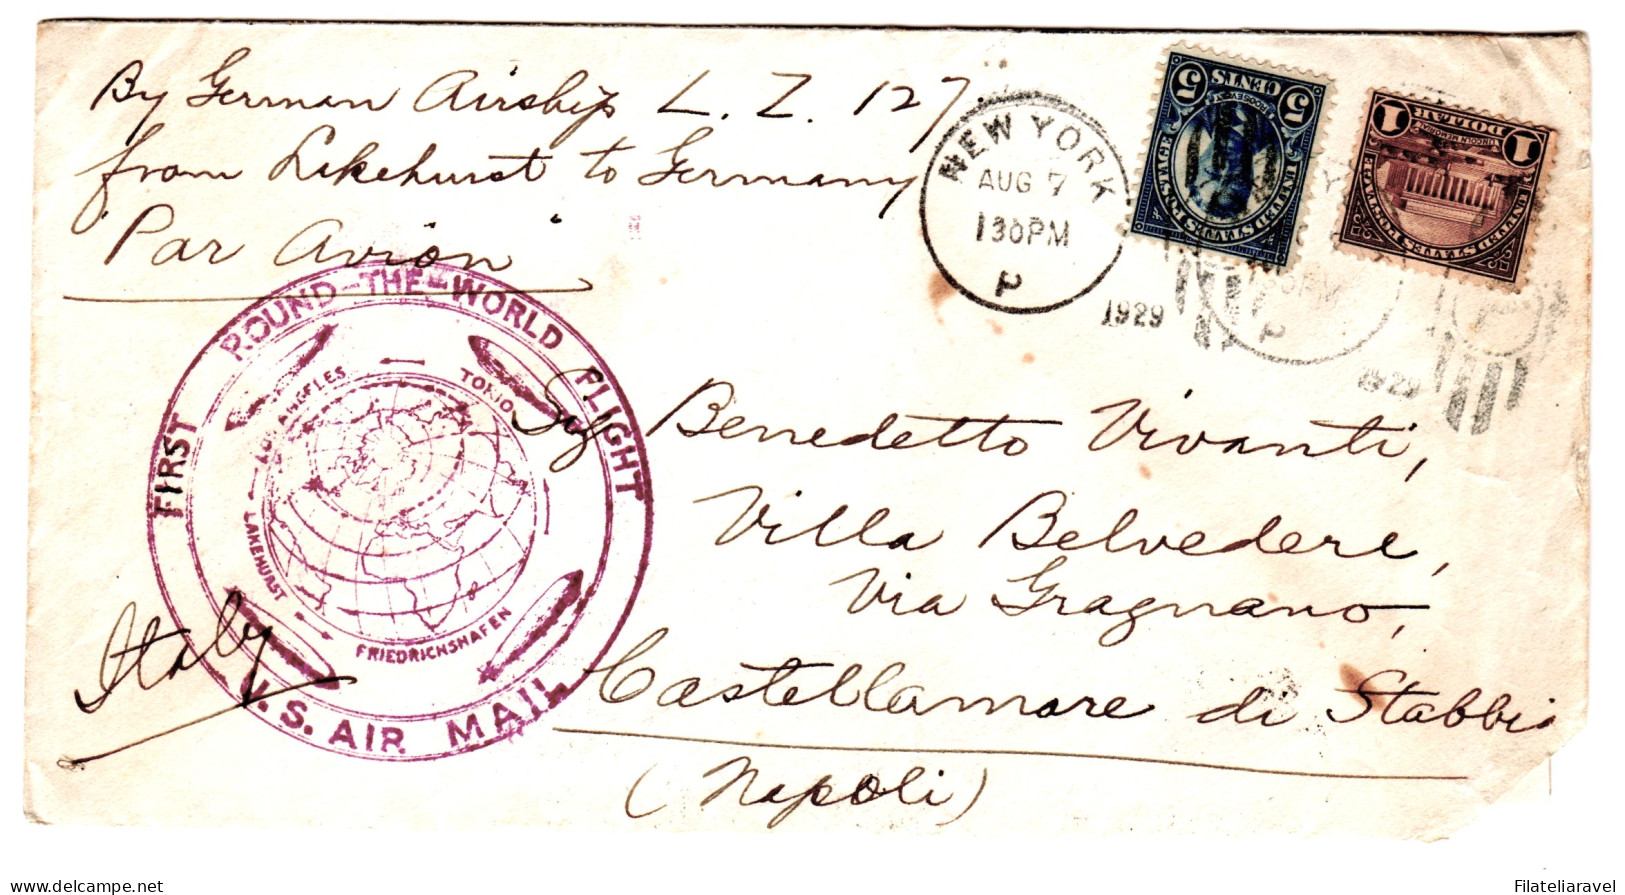 By German Airship L. Z. 127
from Lakehurst to Germany
Par Avion
NEW YORK
AUG 7
130PM
P
1929
5 CENTS 5
ROOSEVELT
UNITED STATES POSTAGE
1 DOLLAR 1
LINCOLN MEMORIAL
UNITED STATES POSTAGE
P
1929
FIRST ROUND-THE-WORLD FLIGHT
LOS ANGELES
TOKIO
LAKEHURST
FRIEDRICHSHAFEN
U.S. AIR MAIL
Sig Benedetto Vivanti,
Villa Belvedere,
Via Gragnano,
Castellamare di Stabbia
(Napoli)
Italy
delcampe.net
Filateliaravel